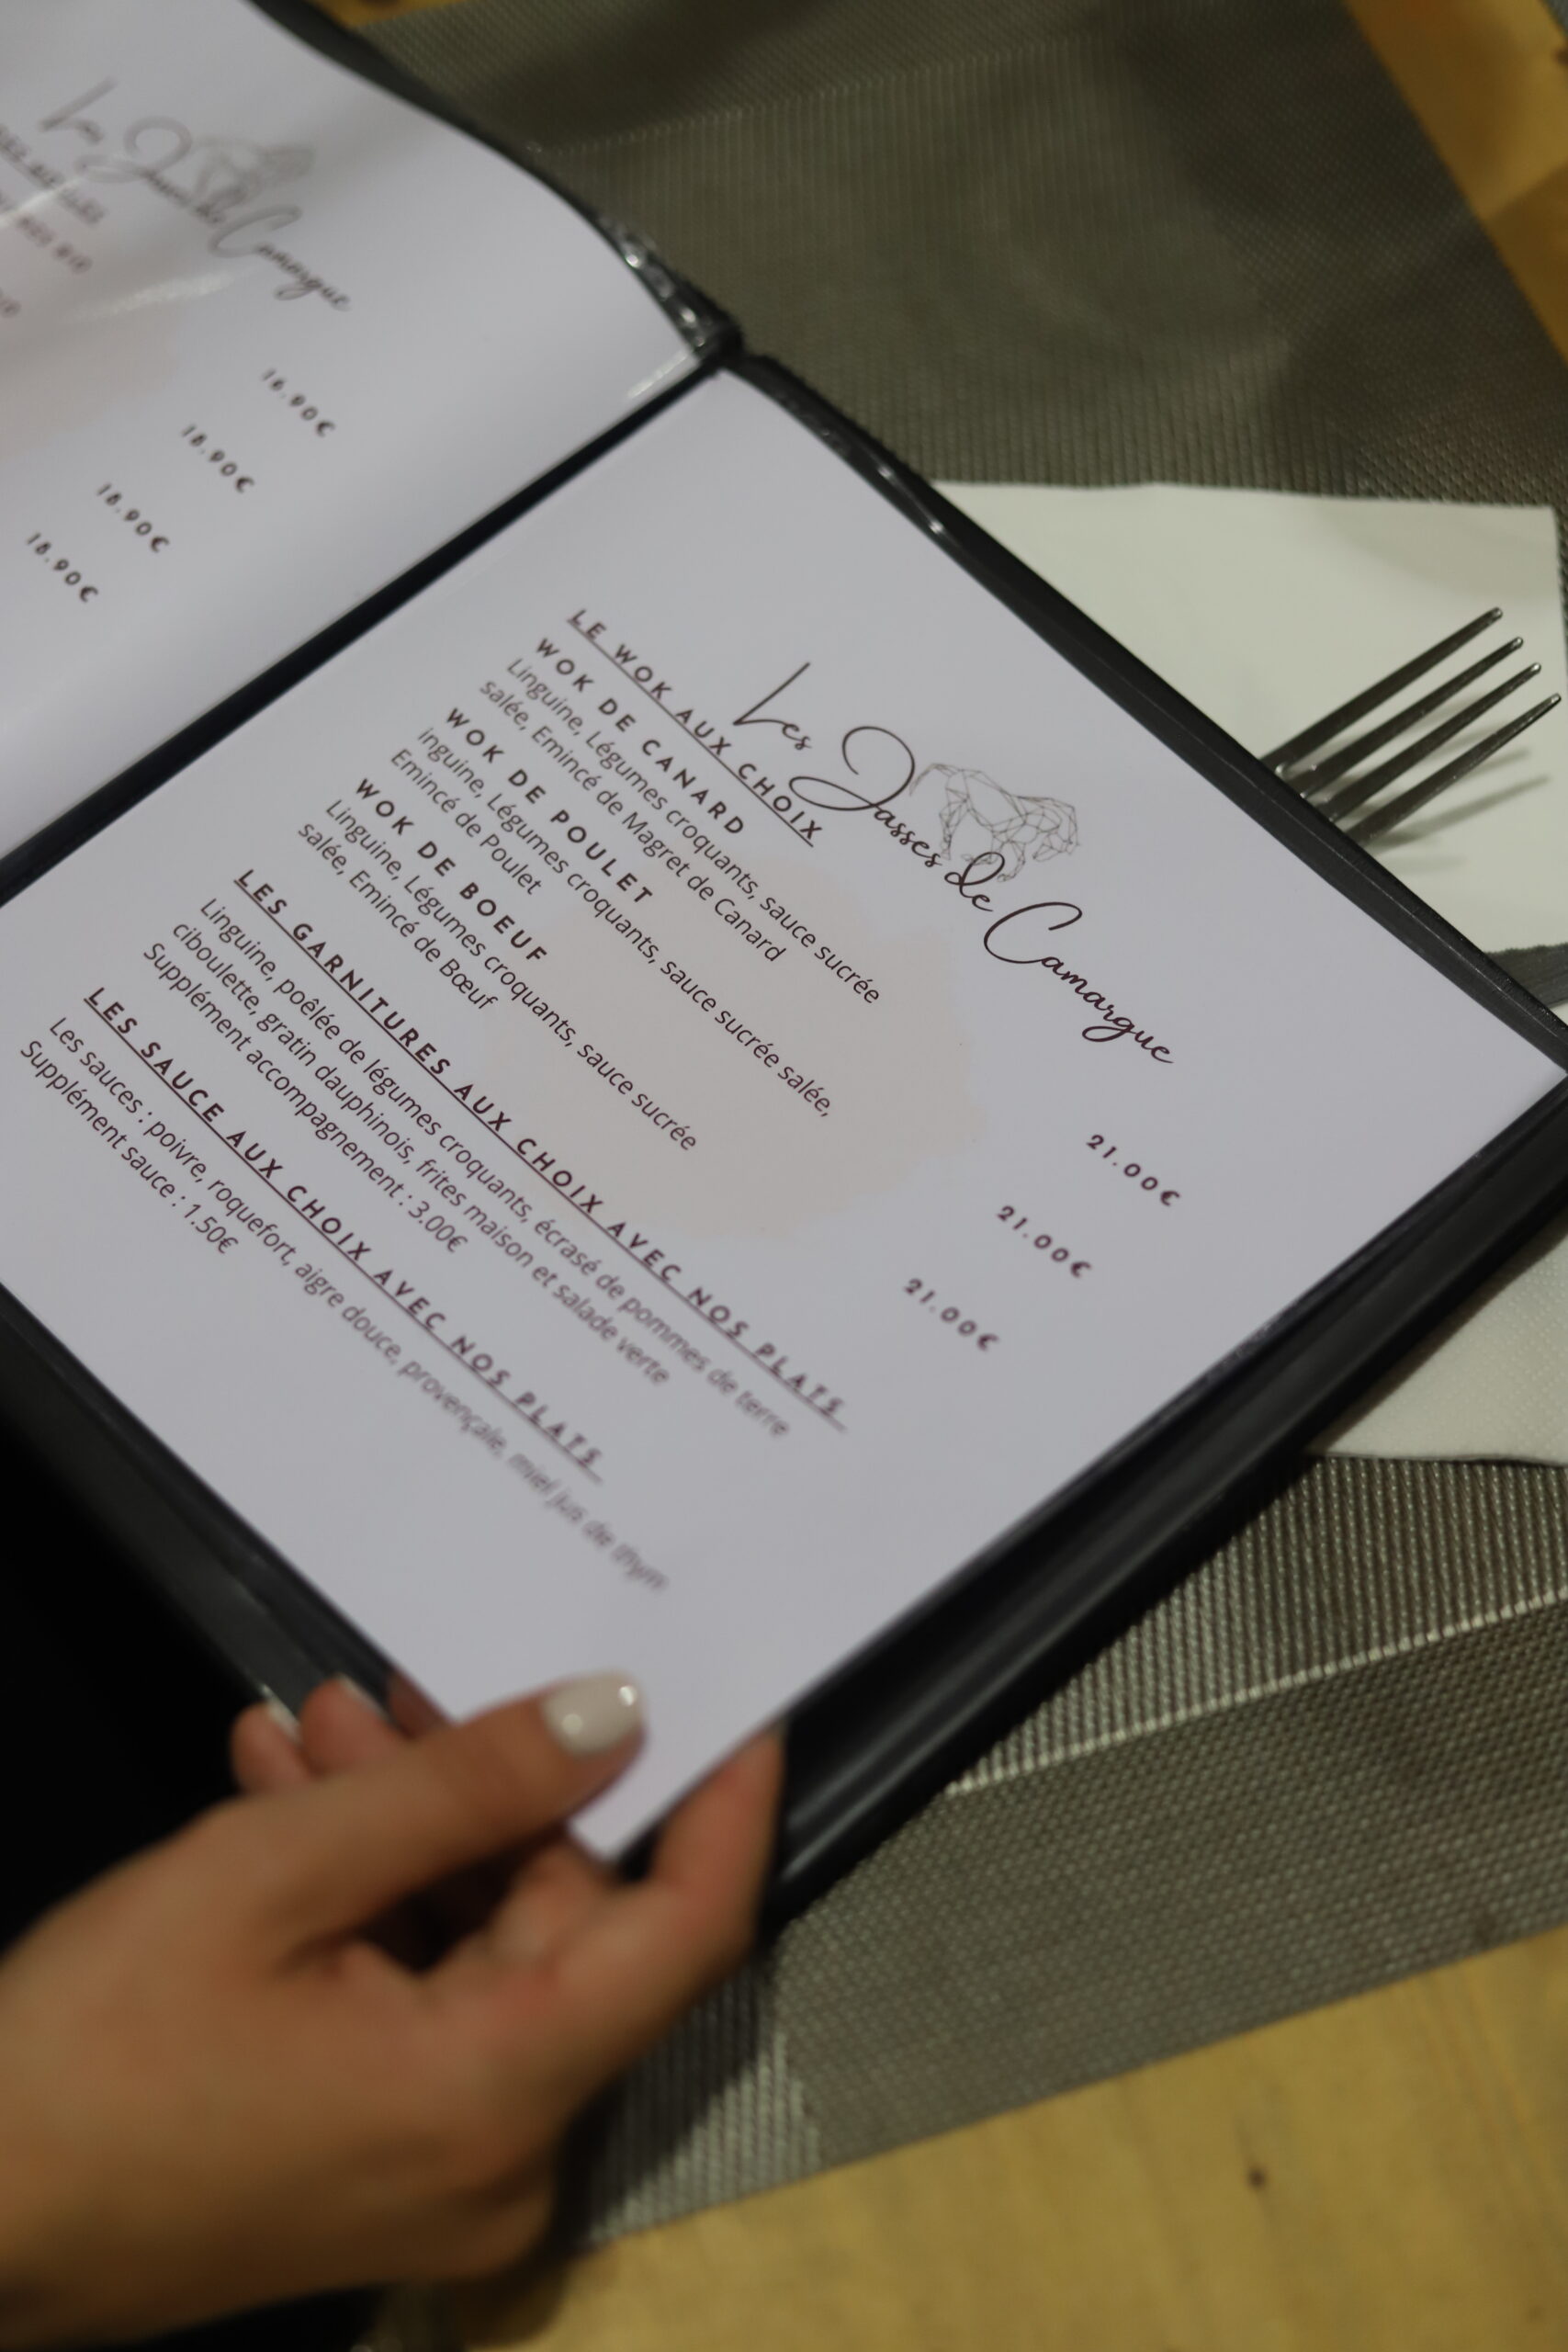 Les Jasses de Camargue
16.90€
18.90€
18.90€
18.90€
Les Jasses de Camargue
LE WOK AUX CHOIX
WOK DE CANARD
Linguine, Légumes croquants, sauce sucrée
salée, Emincé de Magret de Canard
21.00€
WOK DE POULET
inguine, Légumes croquants, sauce sucrée salée,
Emincé de Poulet
21.00€
WOK DE BOEUF
Linguine, Légumes croquants, sauce sucrée
salée, Emincé de Bœuf
21.00€
LES GARNITURES AUX CHOIX AVEC NOS PLATS
Linguine, poêlée de légumes croquants, écrasé de pommes de terre
ciboulette, gratin dauphinois, frites maison et salade verte
Supplément accompagnement : 3.00€
LES SAUCE AUX CHOIX AVEC NOS PLATS
Les sauces : poivre, roquefort, aigre douce, provençale, miel jus de thym
Supplément sauce : 1.50€